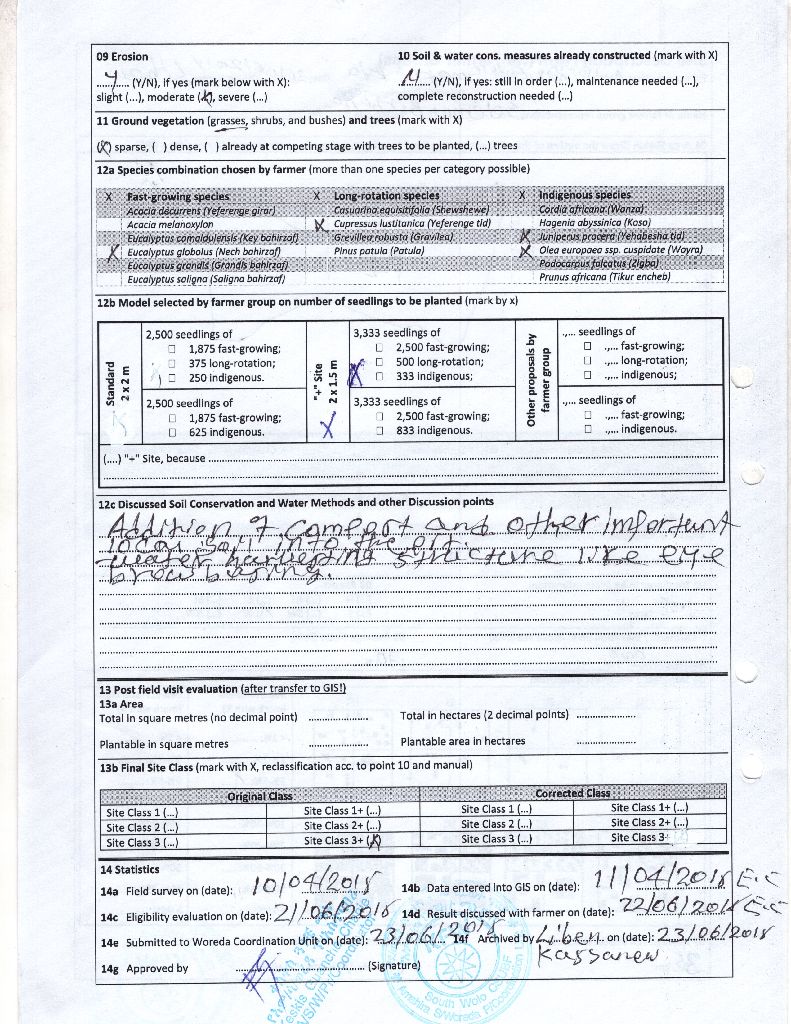 09 Erosion
10 Soil & water cons. measures already constructed (mark with X)
Y (Y/N), if yes (mark below with X):
N (Y/N), if yes: still in order (...), maintenance needed (...),
slight (...), moderate (X), severe (...)
complete reconstruction needed (...)
11 Ground vegetation (grasses, shrubs, and bushes) and trees (mark with X)
(X) sparse, ( ) dense, ( ) already at competing stage with trees to be planted, (...) trees
12a Species combination chosen by farmer (more than one species per category possible)
X Fast-growing species X Long-rotation species X Indigenous species
Acacia decurrens (Yeferenge girar) Casuarina equisitifolia (Shewshewe) Cordia africana (Wanza)
Acacia melanoxylon X Cupressus lustitanica (Yeferenge tid) Hagenia abyssinica (Koso)
Eucalyptus camaldulensis (Key bahirzaf) Grevillea robusta (Gravilea) X Juniperus procera (Yehabesha tid)
X Eucalyptus globolus (Nech bahirzaf) Pinus patula (Patula) X Olea europaea ssp. cuspidate (Wayra)
Eucalyptus grandis (Grandis bahirzaf) Podocarpus falcatus (Zigba)
Eucalyptus saligna (Saligna bahirzaf) Prunus africana (Tikur encheb)
12b Model selected by farmer group on number of seedlings to be planted (mark by x)
Standard
2 x 2 m
2,500 seedlings of
☐ 1,875 fast-growing;
☐ 375 long-rotation;
☐ 250 indigenous.
2,500 seedlings of
☐ 1,875 fast-growing;
☐ 625 indigenous.
"+" Site
2 x 1.5 m
X
3,333 seedlings of
☐ 2,500 fast-growing;
X ☐ 500 long-rotation;
☐ 333 indigenous;
3,333 seedlings of
☐ 2,500 fast-growing;
☐ 833 indigenous.
Other proposals by
farmer group
.,... seedlings of
☐ .,... fast-growing;
☐ .,... long-rotation;
☐ .,... indigenous;
.,... seedlings of
☐ .,... fast-growing;
☐ .,... indigenous.
(....) "+" Site, because
12c Discussed Soil Conservation and Water Methods and other Discussion points
Addition of compost and other important
local soil into the pit.
water harvesting structure like eye
brow basing.
13 Post field visit evaluation (after transfer to GIS!)
13a Area
Total in square metres (no decimal point) Total in hectares (2 decimal points)
Plantable in square metres Plantable area in hectares
13b Final Site Class (mark with X, reclassification acc. to point 10 and manual)
Original Class Corrected Class
Site Class 1 (...) Site Class 1+ (...) Site Class 1 (...) Site Class 1+ (...)
Site Class 2 (...) Site Class 2+ (...) Site Class 2 (...) Site Class 2+ (...)
Site Class 3 (...) Site Class 3+ (X) Site Class 3 (...) Site Class 3-
14 Statistics
14a Field survey on (date): 10/04/2015 14b Data entered into GIS on (date): 11/04/2015 E.C
14c Eligibility evaluation on (date): 21/06/2015 14d Result discussed with farmer on (date): 22/06/2015 E.C
14e Submitted to Woreda Coordination Unit on (date): 23/06/2015 14f Archived by Liben on (date): 23/06/2015
Kassanew
14g Approved by (Signature)
South Wolo